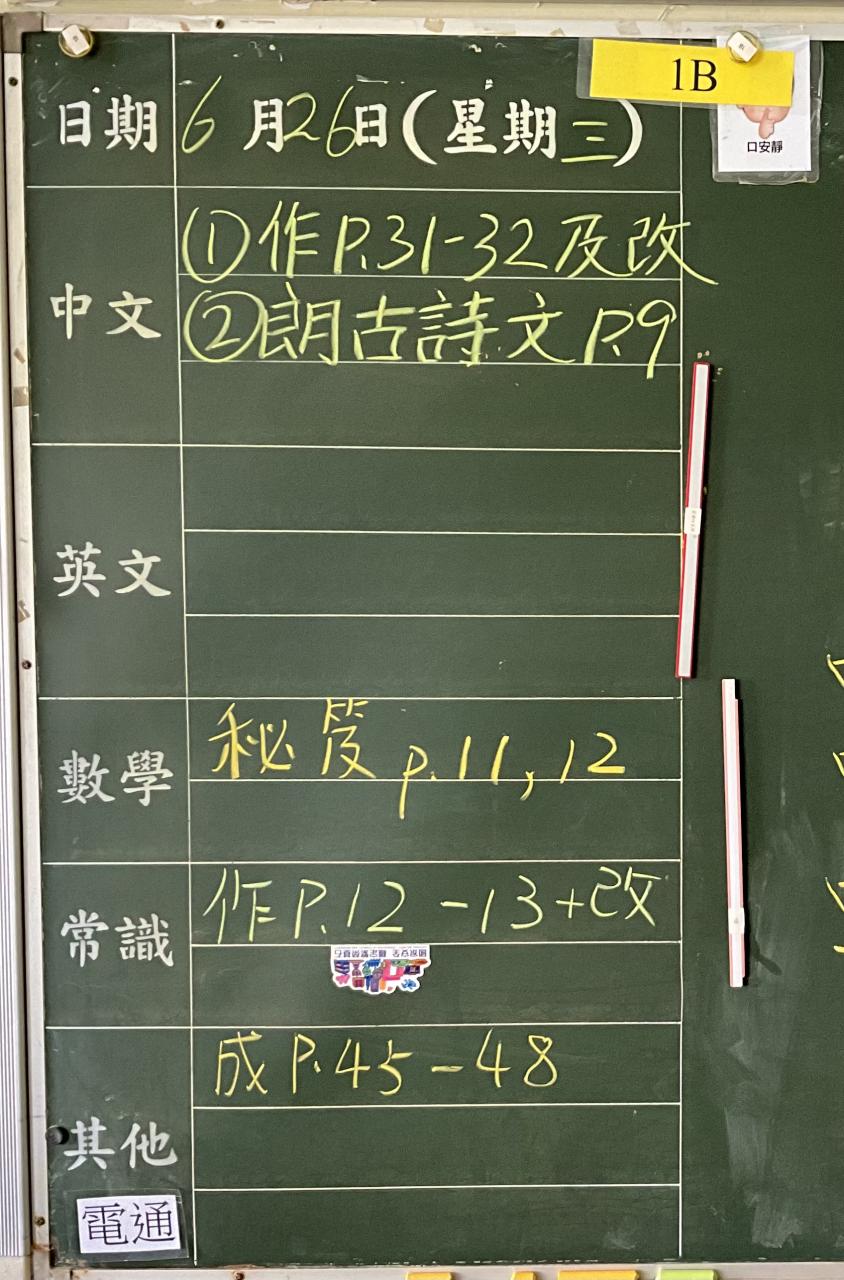 1B
口安靜
日期 6月26日(星期三)
中文
①作P.31-32及改
②朗古詩文P.9
英文
數學
秘笈 p.11,12
常識
作P.12-13+改
其他
成P.45-48
電通